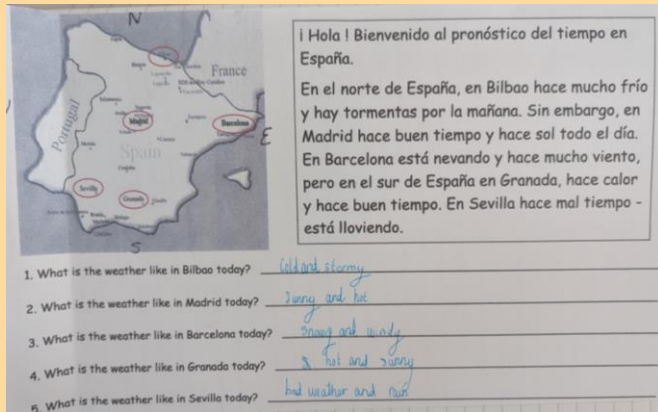 N
France
Portugal
Madrid
Barcelona
E
Spain
Sevilla
Granada
S
¡ Hola ! Bienvenido al pronóstico del tiempo en
España.
En el norte de España, en Bilbao hace mucho frío
y hay tormentas por la mañana. Sin embargo, en
Madrid hace buen tiempo y hace sol todo el día.
En Barcelona está nevando y hace mucho viento,
pero en el sur de España en Granada, hace calor
y hace buen tiempo. En Sevilla hace mal tiempo -
está lloviendo.
1. What is the weather like in Bilbao today? Cold and stormy
2. What is the weather like in Madrid today? Sunny and hot
3. What is the weather like in Barcelona today? Snowy and windy
4. What is the weather like in Granada today? hot and sunny
5. What is the weather like in Sevilla today? bad weather and rain